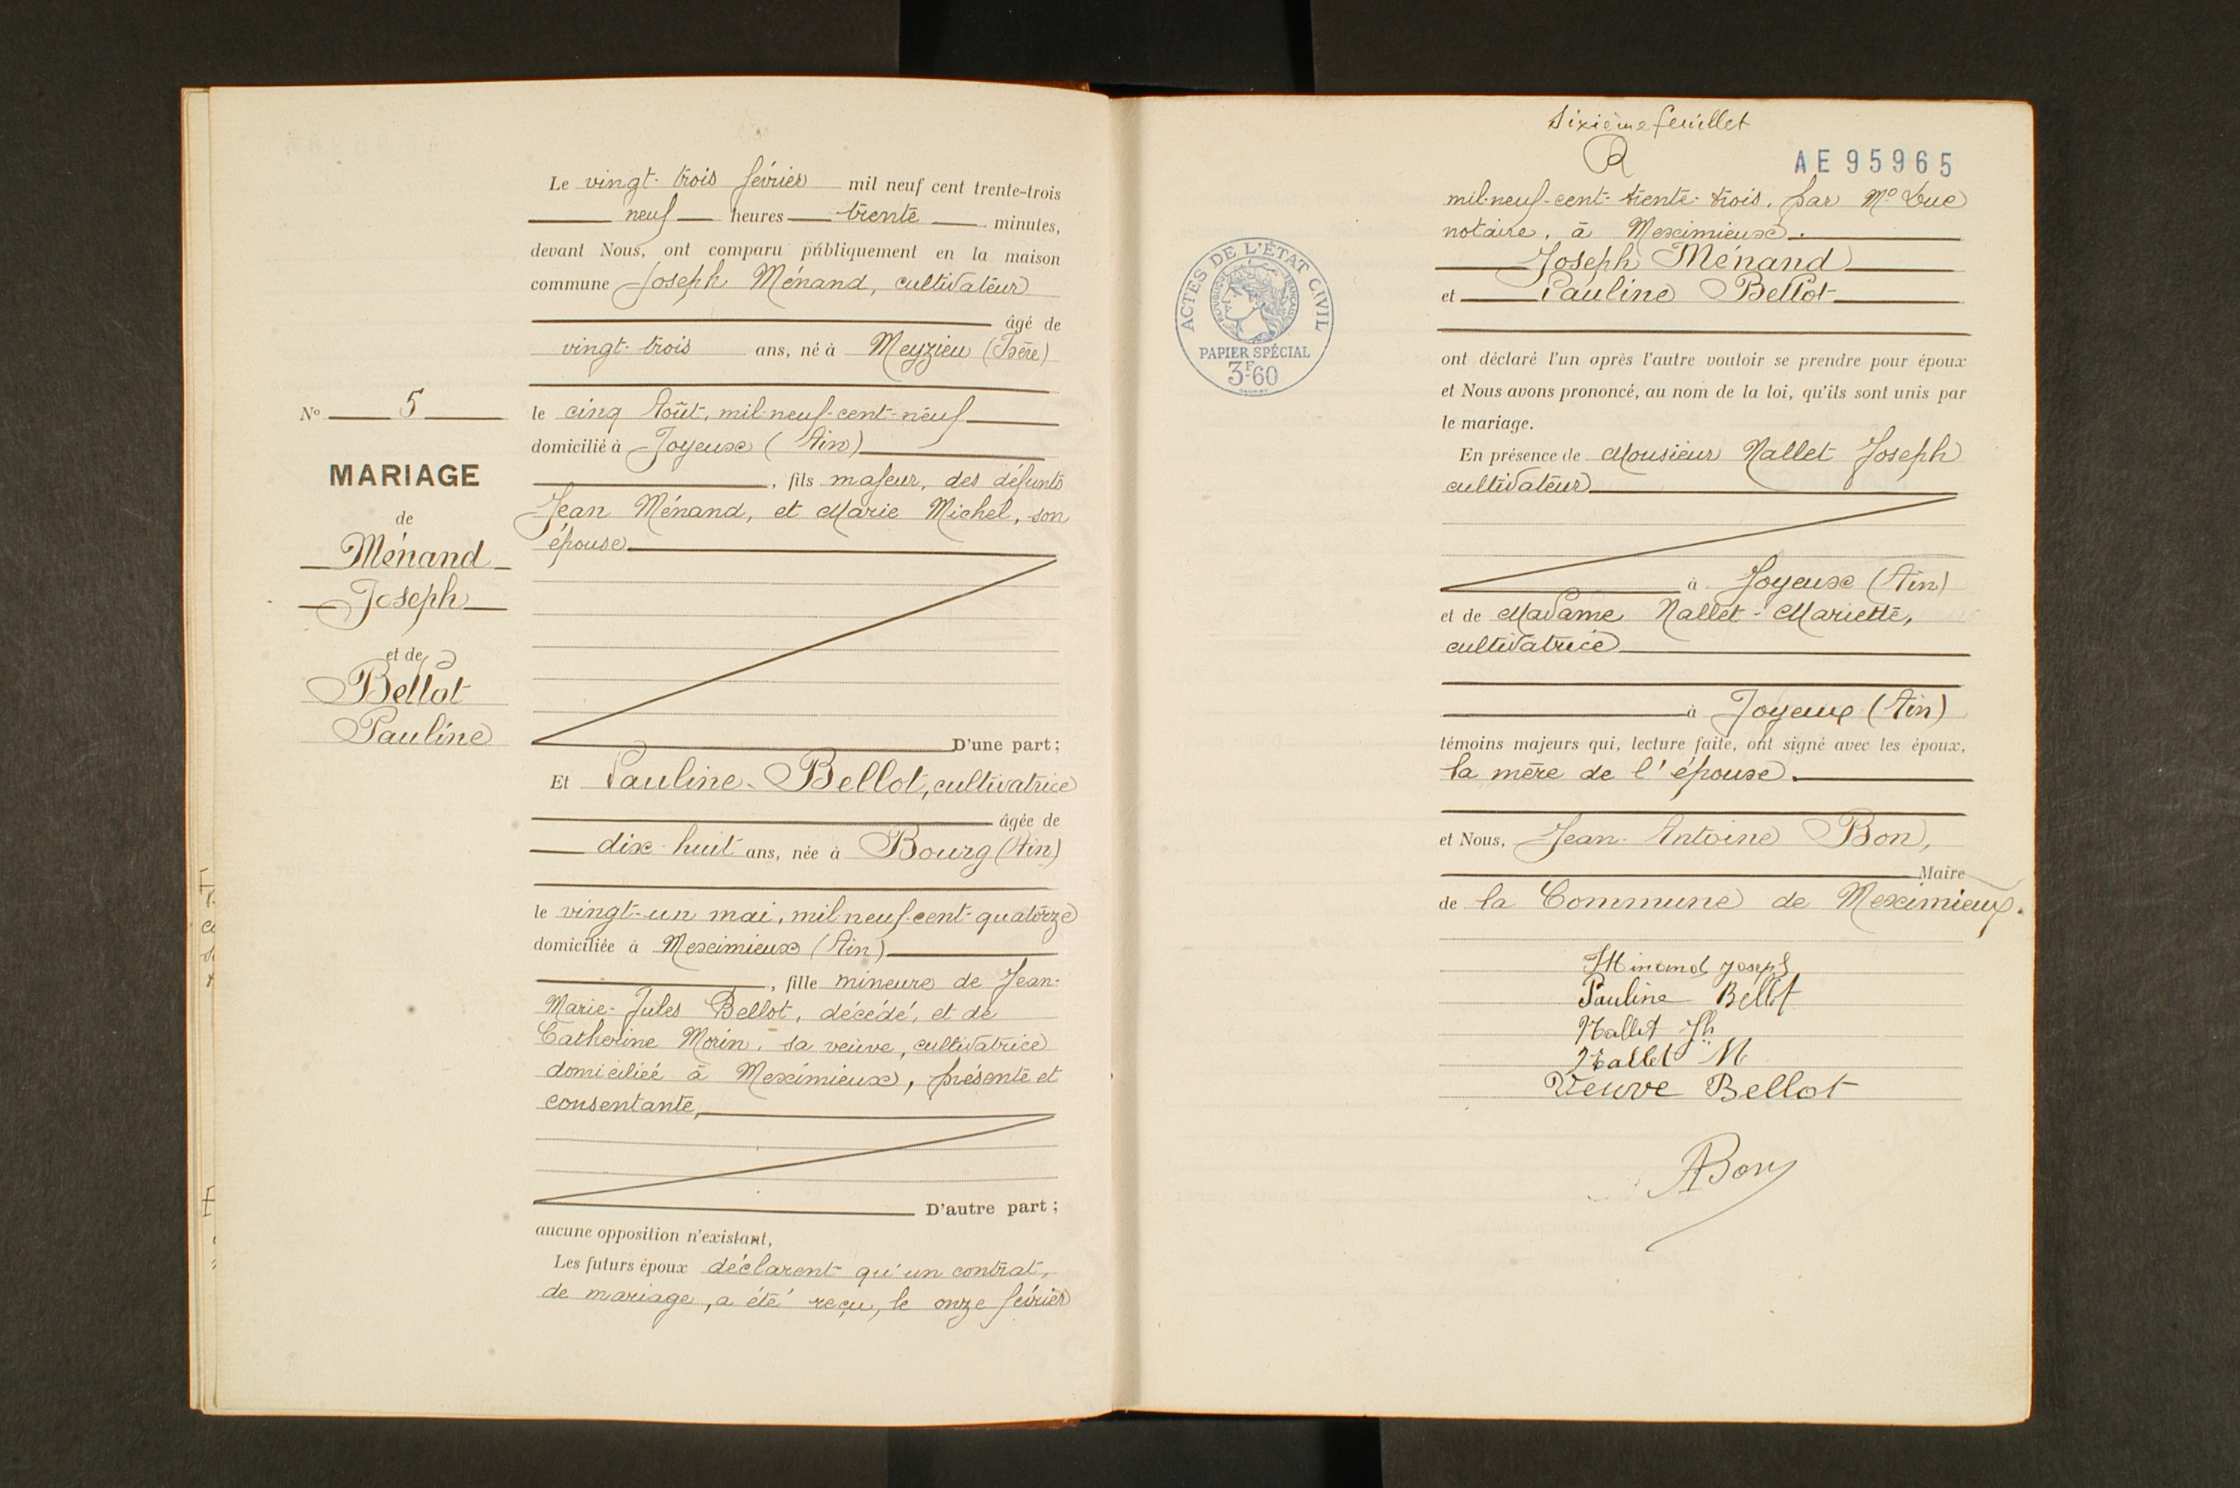 Le vingt-trois février mil neuf cent trente-trois
neuf heures trente minutes,
devant Nous, ont comparu publiquement en la maison
commune Joseph Ménand, cultivateur
âgé de
vingt-trois ans, né à Meyzieu (Isère)
le cinq Août, mil-neuf-cent-neuf
domicilié à Joyeux (Ain)
, fils majeur, des défunts
Jean Ménand, et Marie Michel, son
épouse
D'une part;
No 5
MARIAGE
de
Ménand
Joseph
et de
Bellot
Pauline
Et Pauline Bellot, cultivatrice
âgée de
dix-huit ans, née à Bourg (Ain)
le vingt-un mai, mil neuf-cent-quatorze
domiciliée à Meximieux (Ain)
, fille mineure de Jean-
Marie-Jules Bellot, décédé, et de
Catherine Morin, sa veuve, cultivatrice
domiciliée à Meximieux, présente et
consentante,
D'autre part;
aucune opposition n'existant,
Les futurs époux déclarent qu'un contrat,
de mariage, a été reçu, le onze février
Sixième feuillet
AE 95965
mil-neuf-cent-trente-trois, par Me Duc
notaire, à Meximieux.
Joseph Ménand
et Pauline Bellot
ont déclaré l'un après l'autre vouloir se prendre pour époux
et Nous avons prononcé, au nom de la loi, qu'ils sont unis par
le mariage.
En présence de Monsieur Nallet Joseph
cultivateur
à Joyeux (Ain)
et de Madame Nallet-Mariette,
cultivatrice
à Joyeux (Ain)
témoins majeurs qui, lecture faite, ont signé avec les époux,
la mère de l'épouse.
et Nous, Jean-Antoine Bon,
Maire
de la Commune de Meximieux.
Joseph
Pauline Bellot
Nallet Jh
Nallet M
Veuve Bellot
ABon
ACTES DE L'ÉTAT CIVIL
RÉPUBLIQUE FRANÇAISE
PAPIER SPÉCIAL
3F60